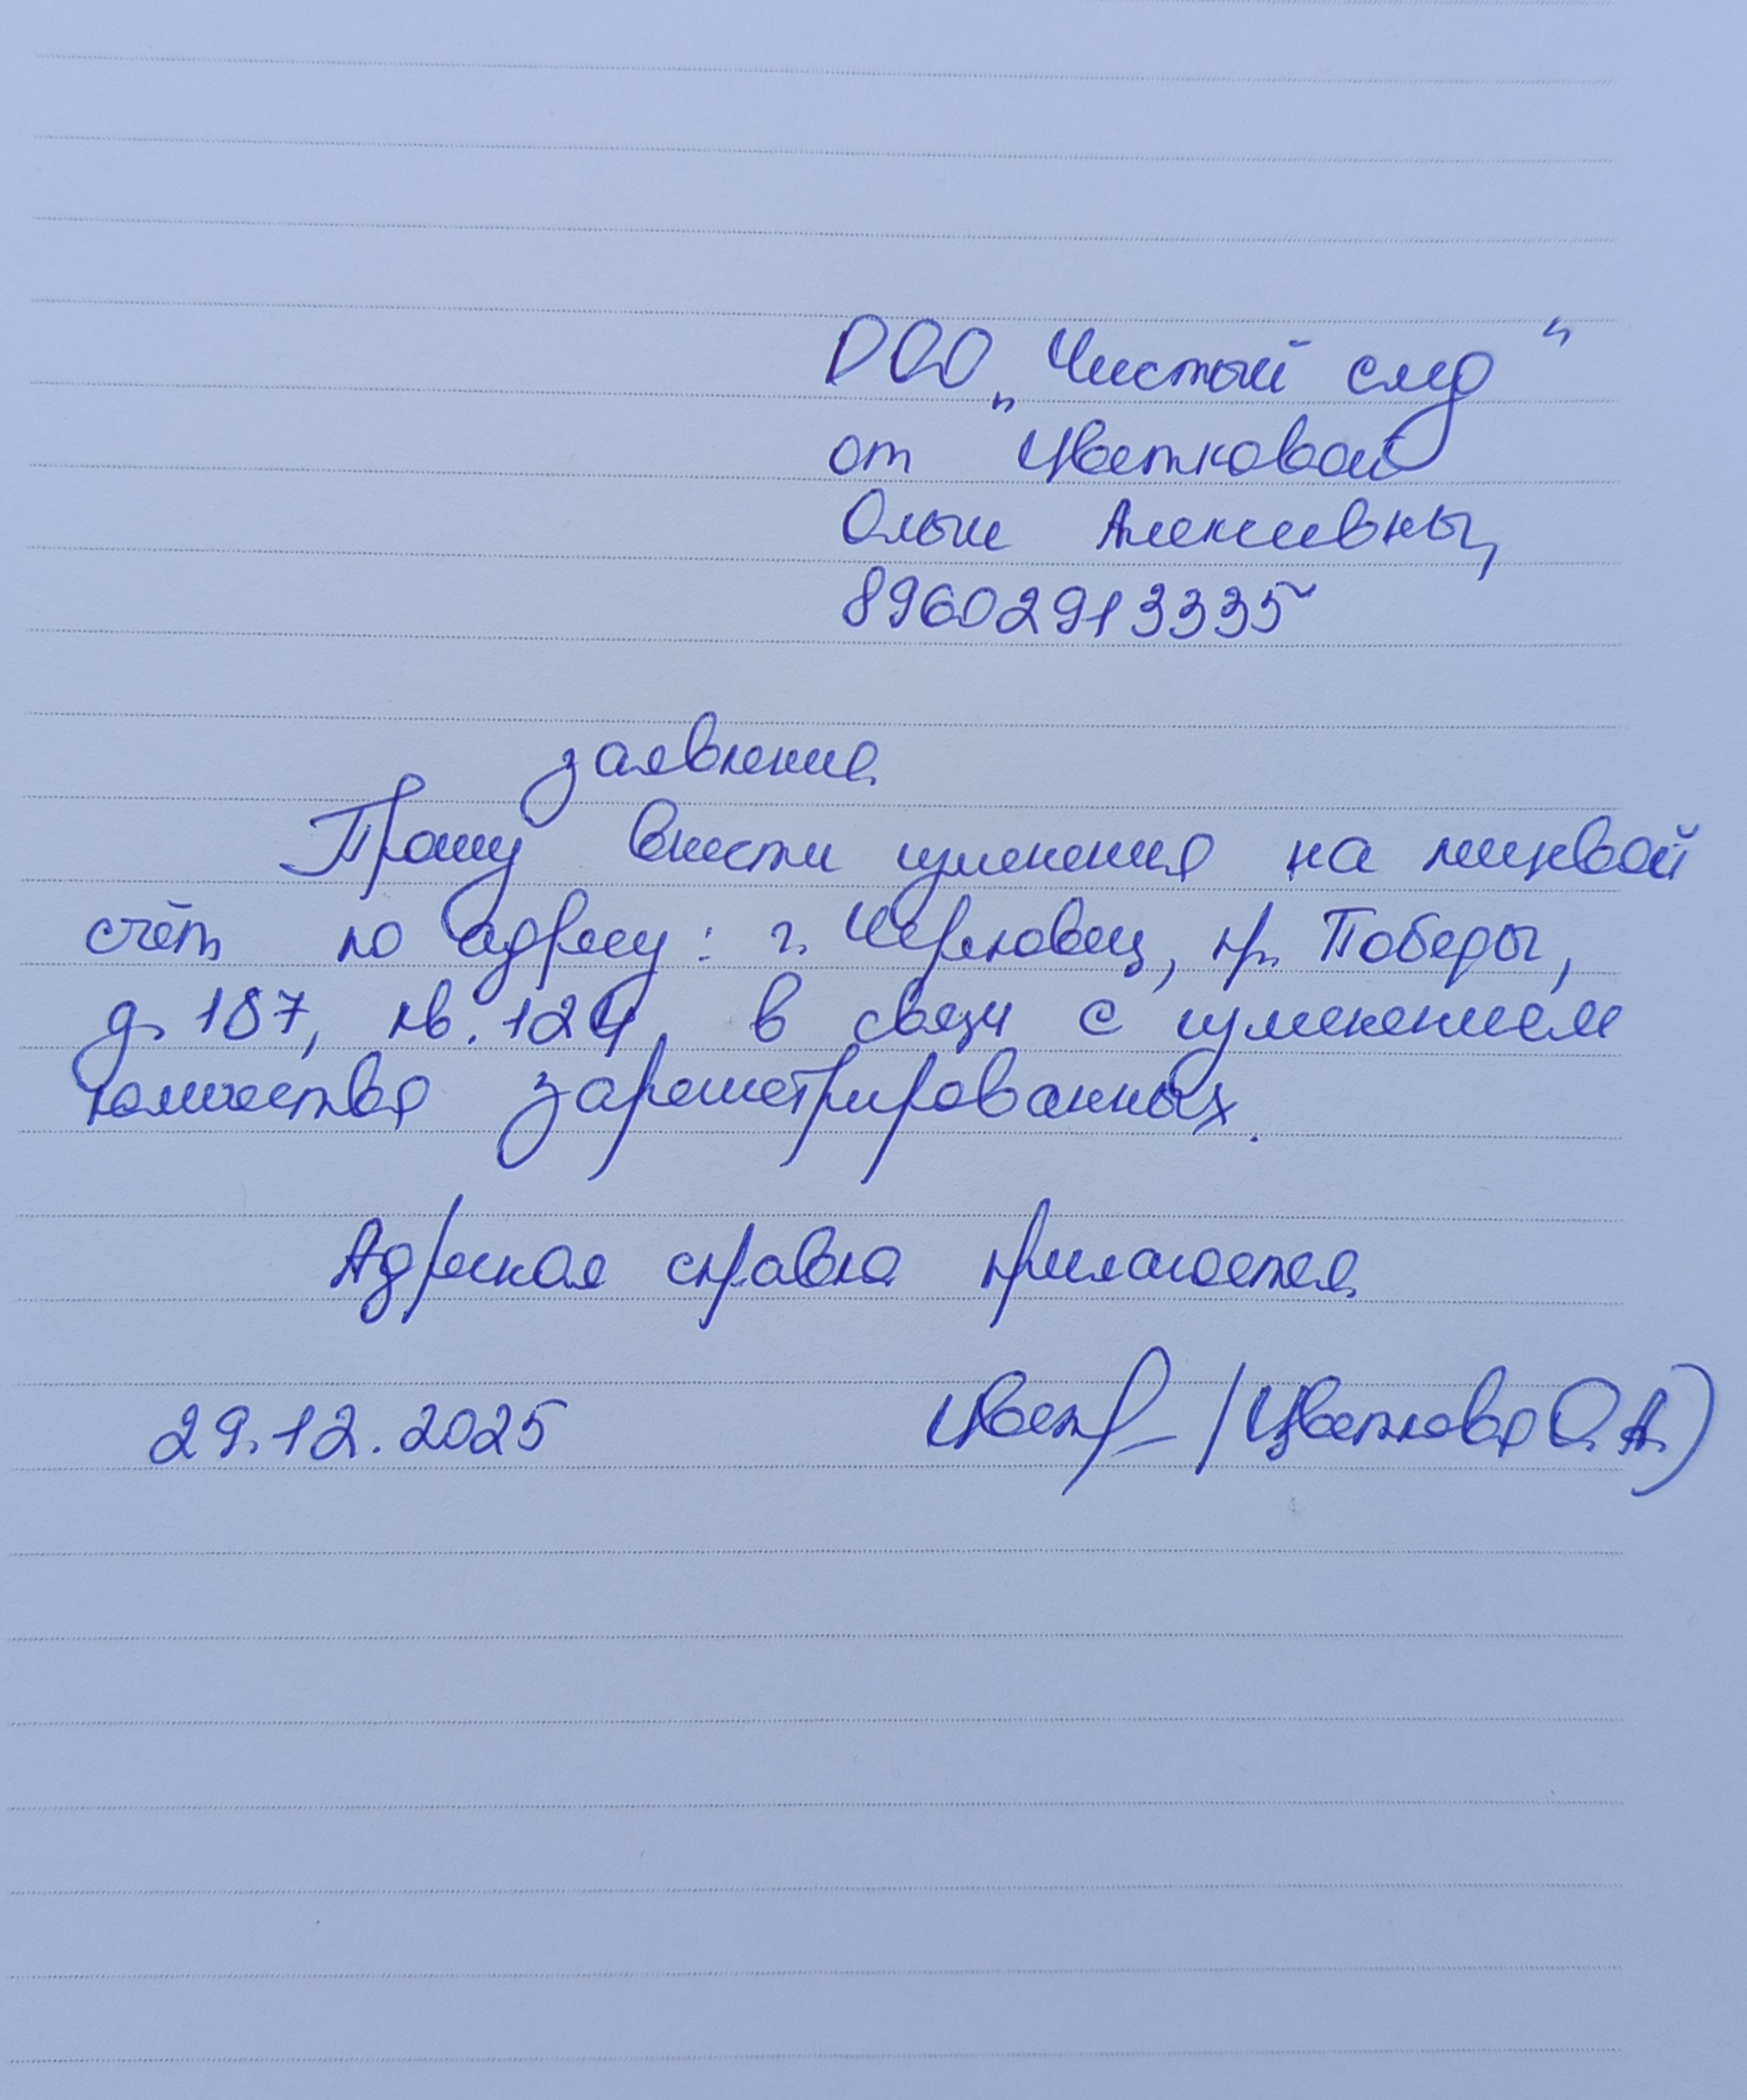 ООО „Чистый след"
от Цветковой
Ольги Алексеевны,
89602913335
заявление.
Прошу внести изменения на лицевой
счёт по адресу: г. Череповец, пр. Победы,
д. 187, кв. 124, в связи с изменением
количества зарегистрированных.
Адресная справка прилагается.
29.12.2025 Цветк /Цветкова О.А.)